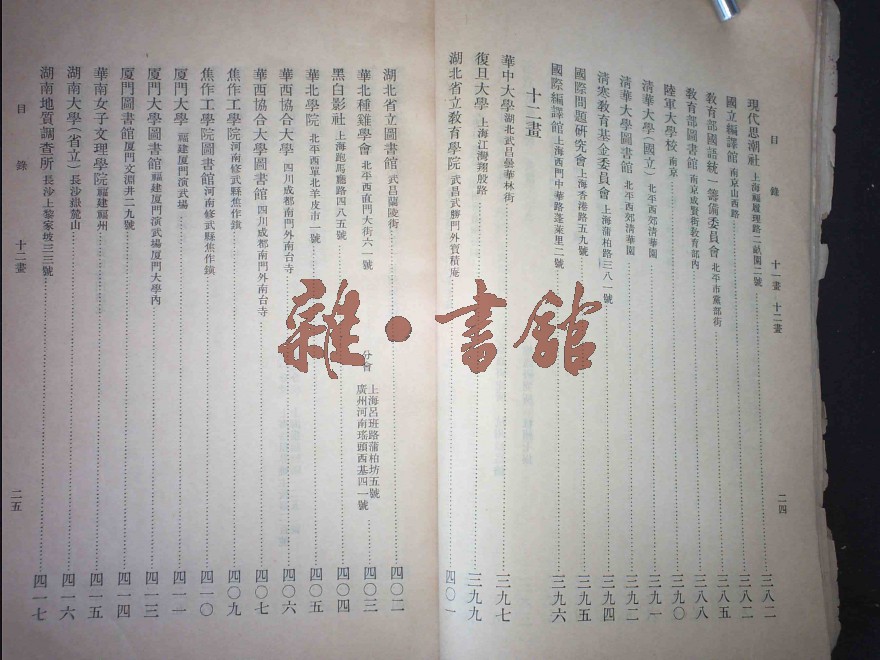 目錄 十一畫 十二畫 二四
現代思潮社 上海福履理路二畝園二號 三八二
國立編譯館 南京山西路 三八二
教育部國語統一籌備委員會 北平市黨部街 三八五
教育部圖書館 南京成賢街教育部內 三八八
陸軍大學校 南京 三九〇
清華大學(國立) 北平西郊清華園 三九一
清華大學圖書館 北平西郊清華園 三九二
清寒教育基金委員會 上海蒲柏路三八一號 三九四
國際問題研究會 上海香港路五九號 三九五
國際編譯館 上海西門中華路蓬萊里二號 三九六
十二畫
華中大學 湖北武昌曇華林街 三九七
復旦大學 上海江灣翔殷路 三九九
湖北省立教育學院 武昌武勝門外寶積庵 四〇一
湖北省立圖書館 武昌蘭陵街 四〇二
華北種雞學會 北平西直門大街六一號 分會 上海呂班路蒲柏坊五號 廣州河南瑤頭西基四一號 四〇三
黑白影社 上海跑馬廳路四八五號 四〇四
華北學院 北平西單北羊皮市一號 四〇五
華西協合大學 四川成都南門外南台寺 四〇六
華西協合大學圖書館 四川成都南門外南台寺 四〇七
焦作工學院 河南修武縣焦作鎮 四〇九
焦作工學院圖書館 河南修武縣焦作鎮 四一〇
厦門大學 福建厦門演武場 四一一
厦門大學圖書館 福建厦門演武場厦門大學內 四一三
厦門圖書館 厦門文淵井二九號 四一四
華南女子文理學院 福建福州 四一五
湖南大學(省立) 長沙嶽麓山 四一六
湖南地質調查所 長沙上黎家坡三三號 四一七
目錄 十二畫 二五
雜·書館